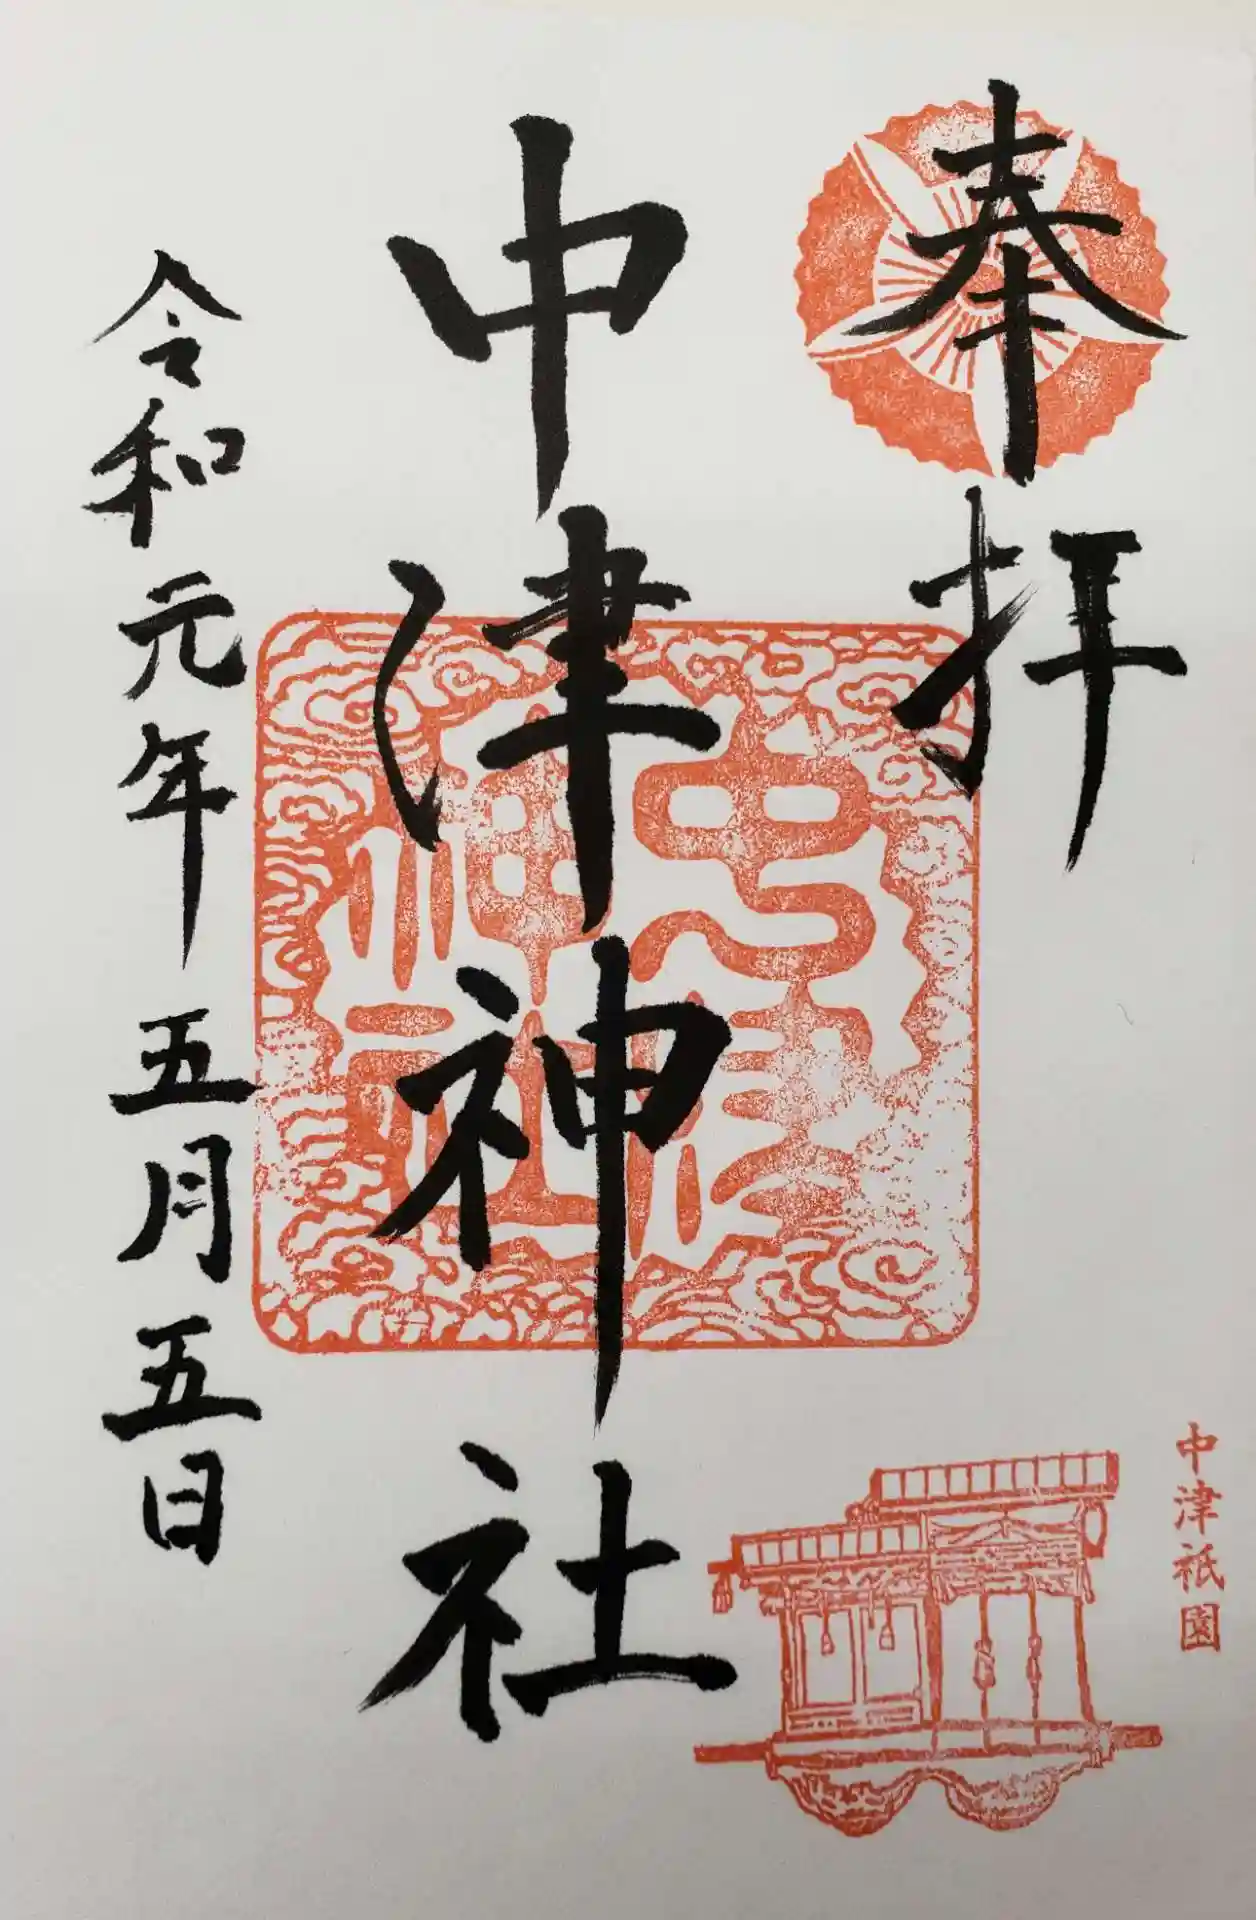 奉拝
中津神社
中津神社
令和元年五月五日
中津祇園